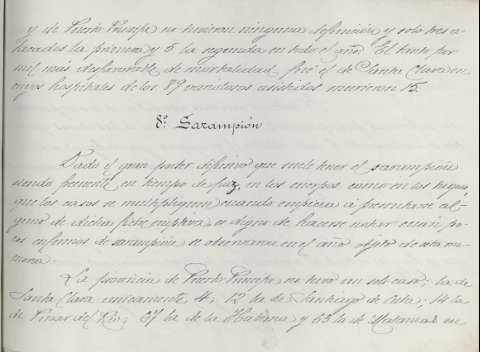 y de Puerto Príncipe no tuvieron ninguna defunción y solo tres a-
la primera y 5 la segunda en todo el año. El tanto por
mil más desfavorable de mortalidad fué el de Santa Clara en
cuyos hospitales de los 89 variolosos asistidos murieron 15.
8º Sarampión
Dado el gran poder difusivo que suele tener el sarampión
siendo frecuente en tiempo de paz, en los cuerpos como en los
que los casos se multipliquen cuando empieza á presentarse al-
guno de dicha fiebre eruptiva es digno de hacerse notar cuan po-
cos enfermos de sarampión se observaron en el año de esta
La provincia de Puerto Príncipe no tuvo un solo caso; la de
Santa Clara unicamente 4; 12 la de Santiago de Cuba; 14 la
de Pinar del Rio; 37 la de la Habana y 63 la de Matanzas en